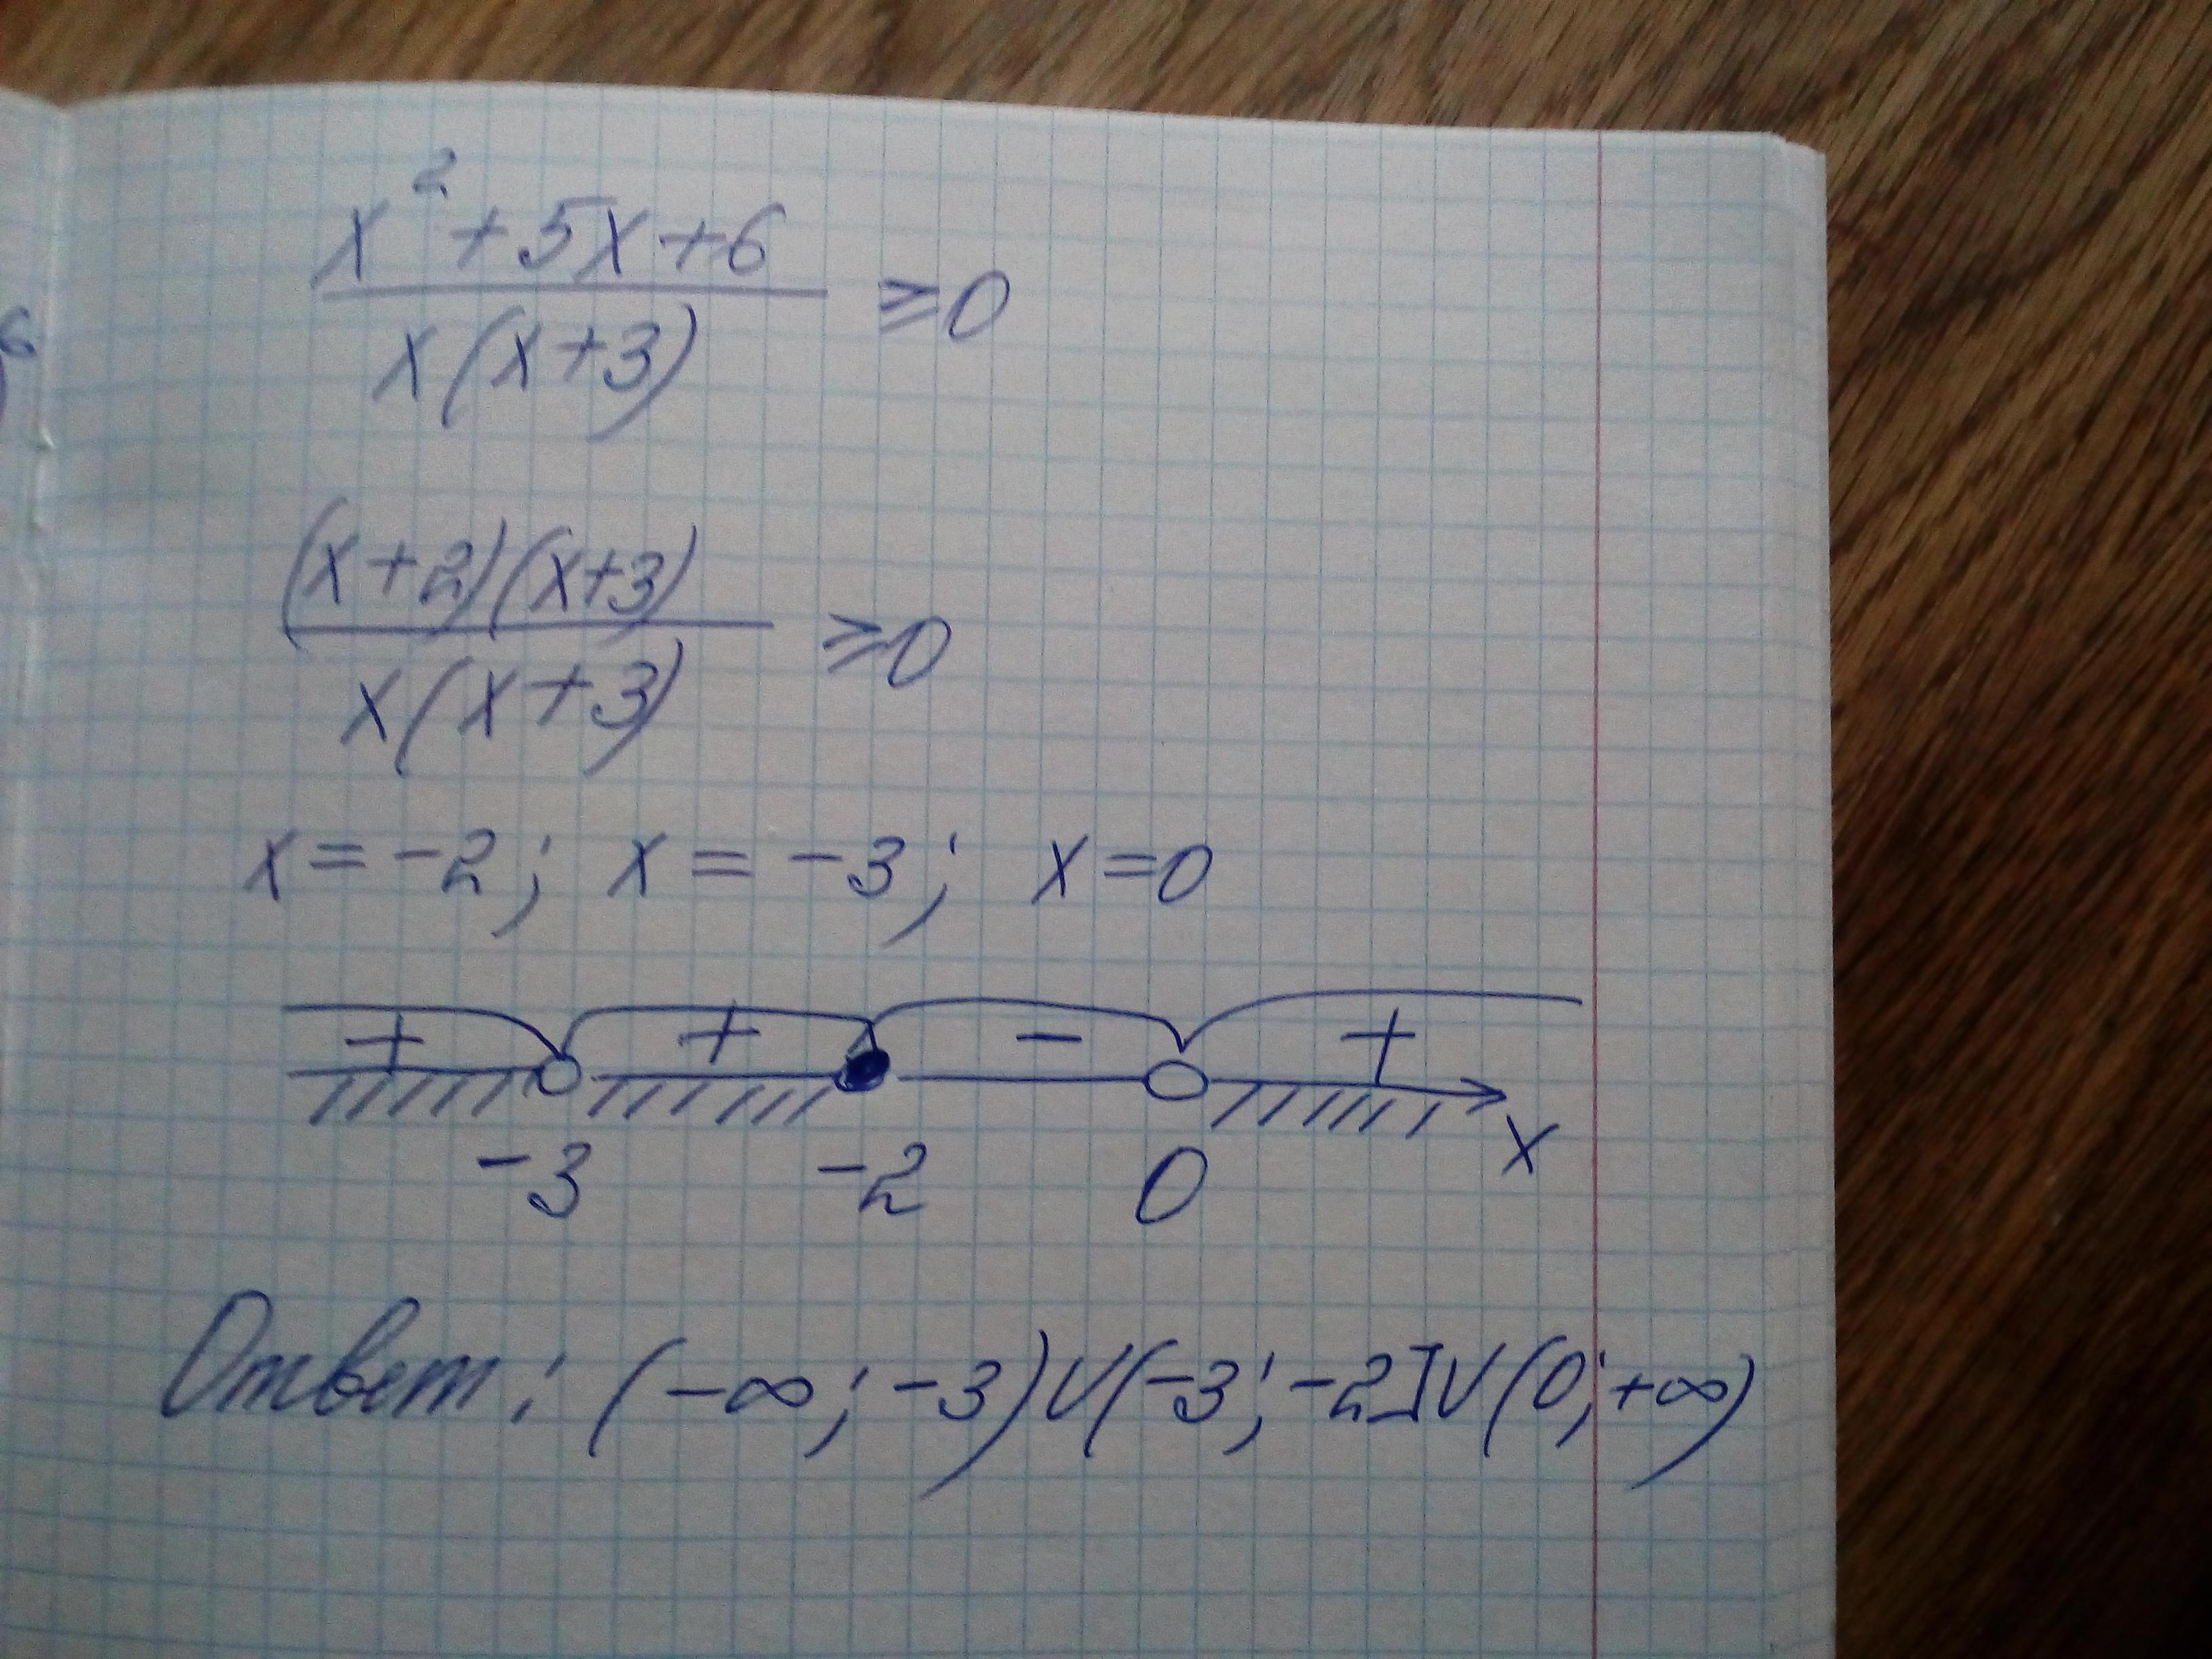 x² + 5x + 6
x(x + 3)
≥ 0
(x + 2)(x + 3)
x(x + 3)
≥ 0
x = -2; x = -3; x = 0
+ + - +
-3 -2 0 x
Ответ: (-∞; -3)∪(-3; -2]∪(0; +∞)